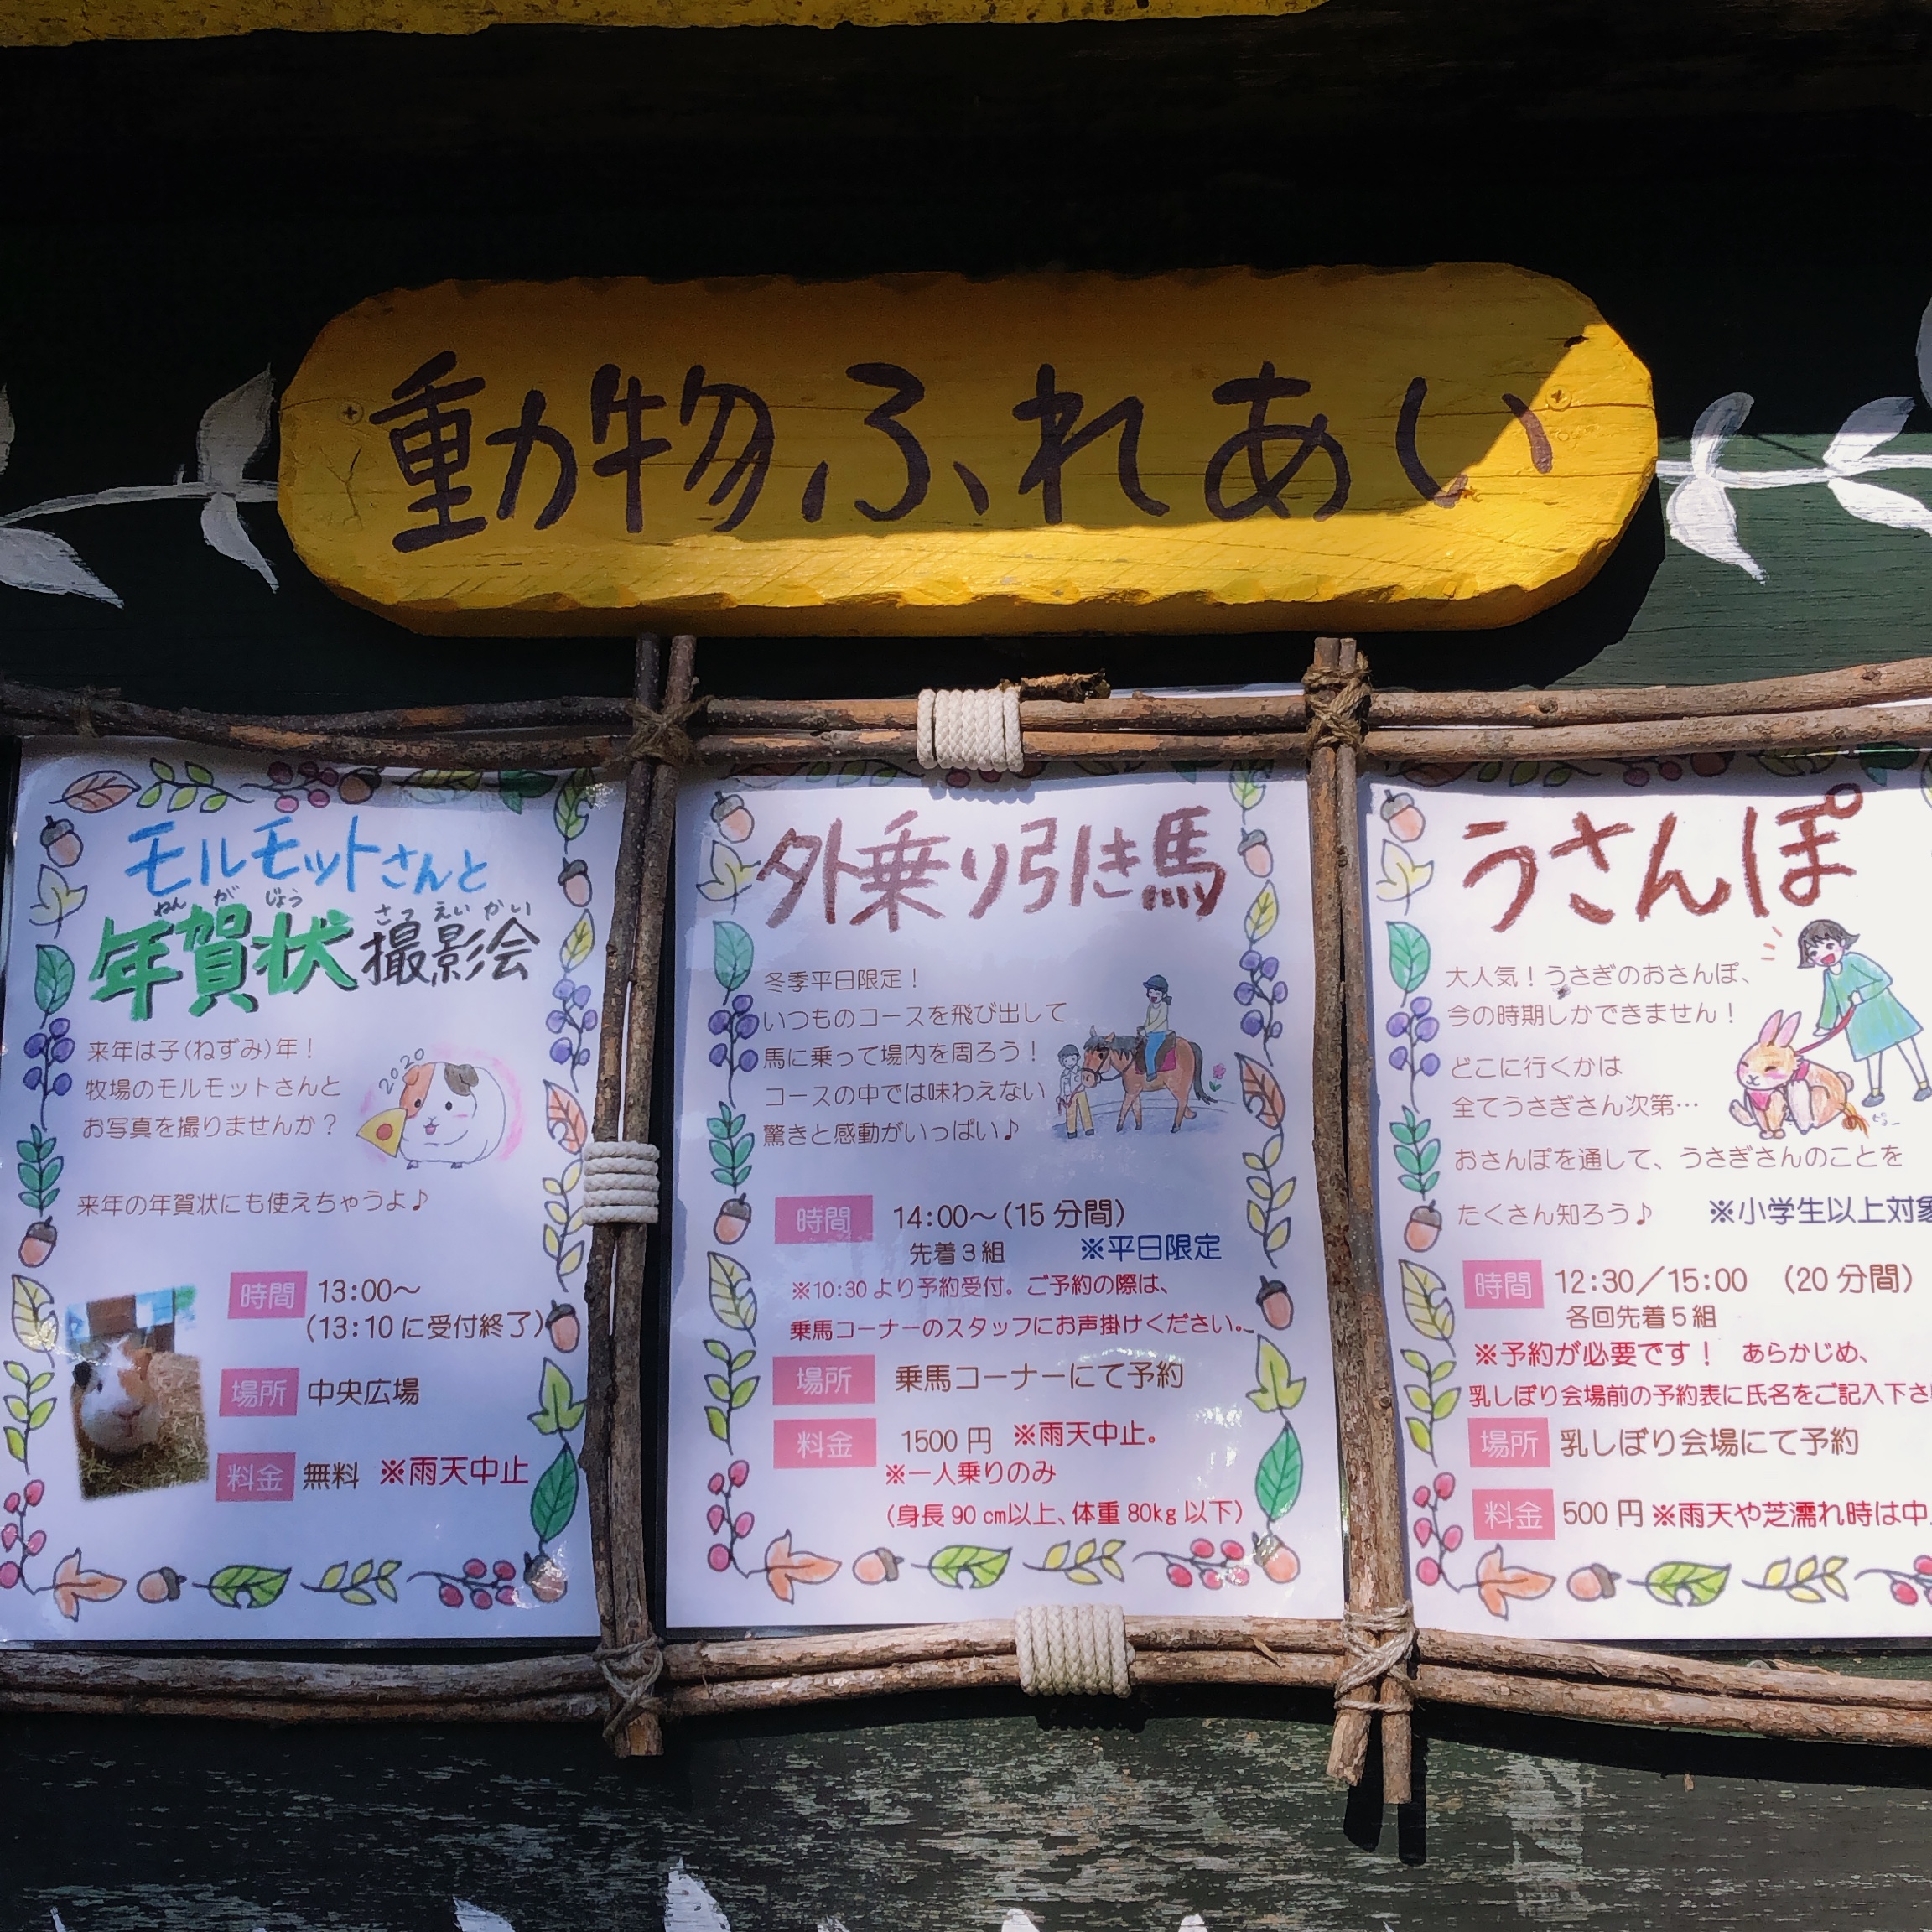 動物ふれあい
モルモットさんと
ねんがじょう さつえいかい
年賀状撮影会
来年は子(ねずみ)年！
牧場のモルモットさんと
お写真を撮りませんか？
2020
来年の年賀状にも使えちゃうよ♪
時間 13:00～
(13:10に受付終了)
場所 中央広場
料金 無料 ※雨天中止
外乗り引き馬
冬季平日限定！
いつものコースを飛び出して
馬に乗って場内を周ろう！
コースの中では味わえない
驚きと感動がいっぱい♪
時間 14:00～(15分間)
先着3組 ※平日限定
※10:30より予約受付。ご予約の際は、
乗馬コーナーのスタッフにお声掛けください。
場所 乗馬コーナーにて予約
料金 1500円 ※雨天中止。
※一人乗りのみ
(身長90㎝以上、体重80kg以下)
うさんぽ
大人気！うさぎのおさんぽ、
今の時期しかできません！
どこに行くかは
全てうさぎさん次第…
おさんぽを通して、うさぎさんのことを
たくさん知ろう♪ ※小学生以上対象
時間 12:30／15:00 (20分間)
各回先着5組
※予約が必要です！ あらかじめ、
乳しぼり会場前の予約表に氏名をご記入下さ
場所 乳しぼり会場にて予約
料金 500円 ※雨天や芝濡れ時は中